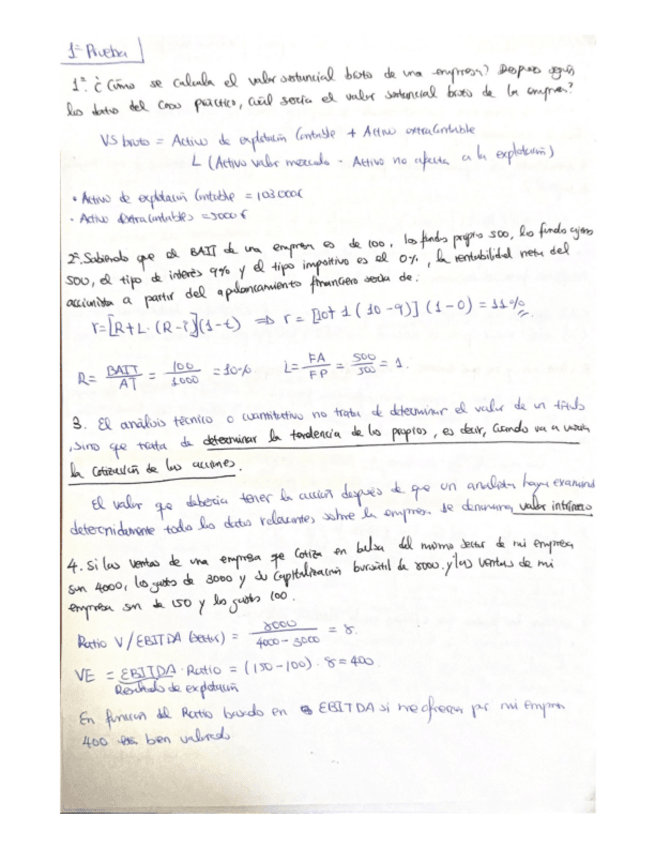 1ª Prueba
1ª. ¿Cómo se calcula el valor sustancial bruto de una empresa? Después según
los datos del caso práctico, cuál sería el valor sustancial bruto de la empresa?
VS bruto = Activo de explotación Contable + Activo extracontable
L (Activo valor mercado - Activo no afecta a la explotación)
• Activo de explotación Contable = 103000€
• Activo Extracontables = 5000€
2ª. Sabiendo que el BAIT de una empresa es de 100, los fondos propios 500, los fondos ajenos
500, el tipo de interés 9% y el tipo impositivo es el 0%, la rentabilidad neta del
accionista a partir del apalancamiento financiero sería de:
r = [R+L· (R-i)](1-t) ⇒ r = [10+ 1 (10-9)] (1-0) = 11%
R = BAIT / AT = 100 / 1000 = 10% L = FA / FP = 500 / 500 = 1.
3. El análisis técnico o cuantitativo no trata de determinar el valor de un título
, sino que trata de determinar la tendencia de los propios, es decir, cuando va a
la cotización de las acciones.
El valor que debería tener la acción después de que un analista haya examinado
detenidamente todos los datos relevantes sobre la empresa se denomina valor intrínseco
4. Si las ventas de una empresa que cotiza en bolsa del mismo sector de mi empresa
son 4000, los gastos de 3000 y su capitalización bursátil de 8000. y las ventas de mi
empresa son de 150 y los gastos 100.
Ratio V/EBITDA (sector) = 8000 / 4000 - 3000 = 8.
VE = EBITDA · Ratio = (150-100) · 8 = 400
Resultado de explotación
En función del Ratio basado en EBITDA si me ofrecen por mi empresa
400 es bien valorado